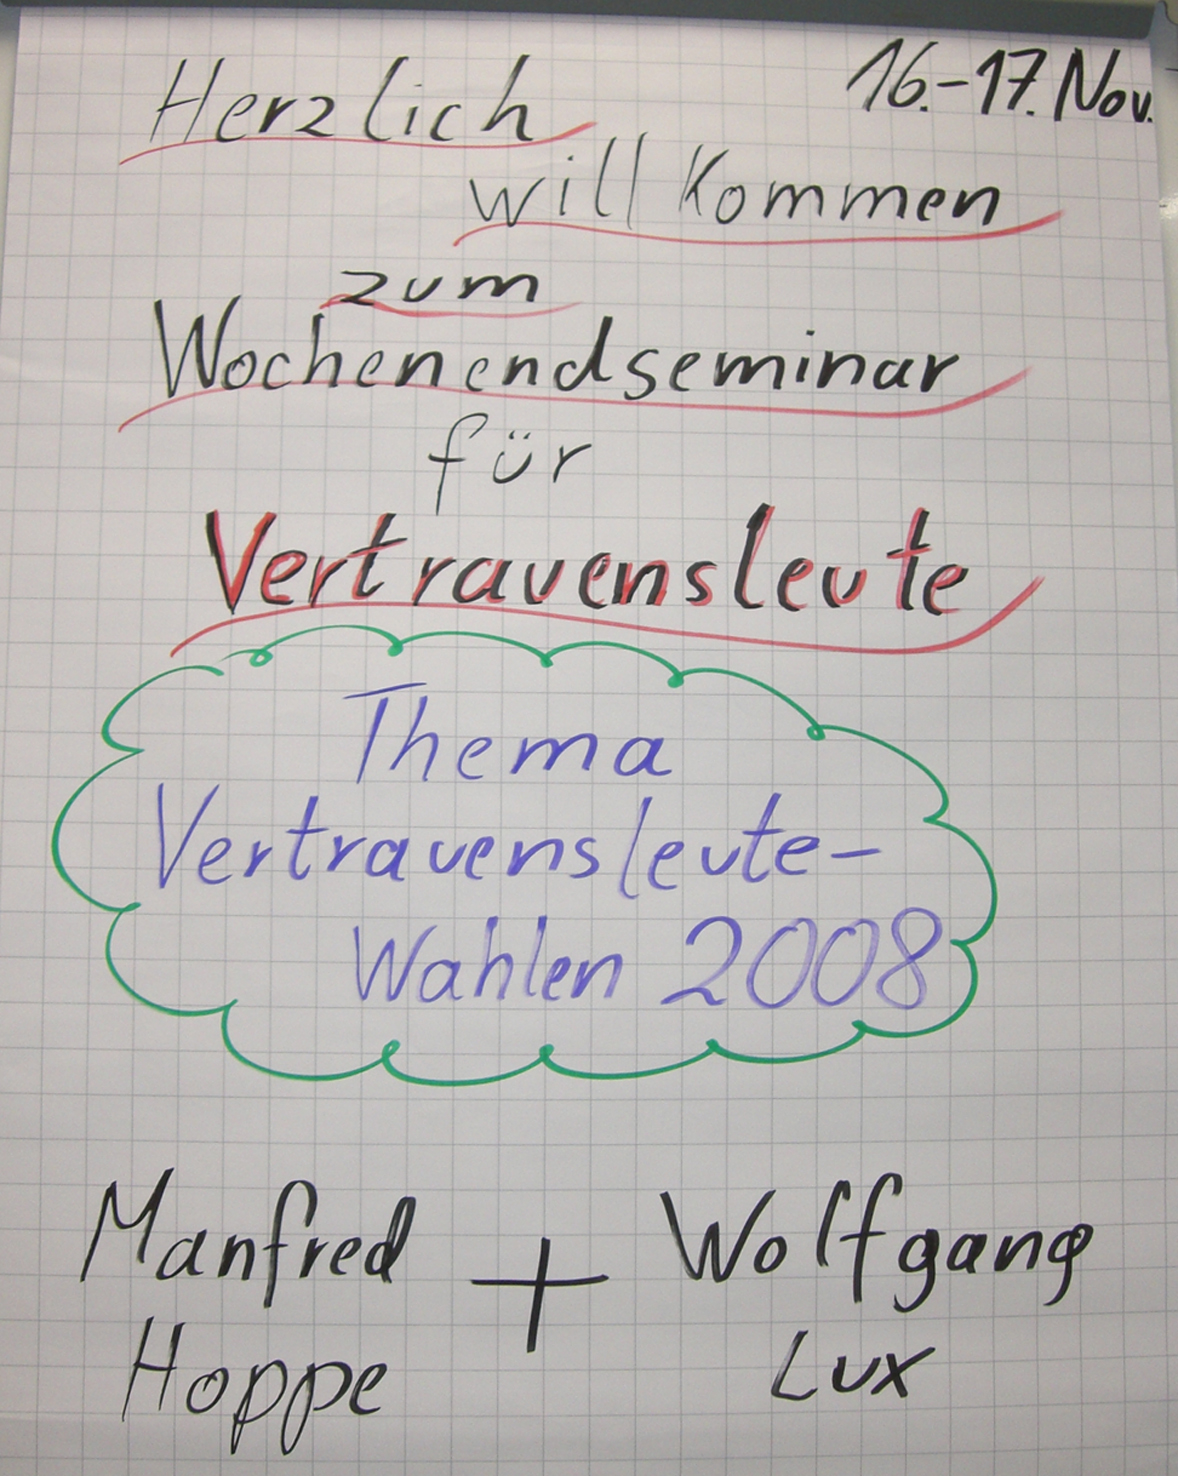 16.-17. Nov.
Herzlich
will kommen
zum
Wochenendseminar
für
Vertrauensleute
Thema
Vertrauensleute-
Wahlen 2008
Manfred + Wolfgang
Hoppe Lux